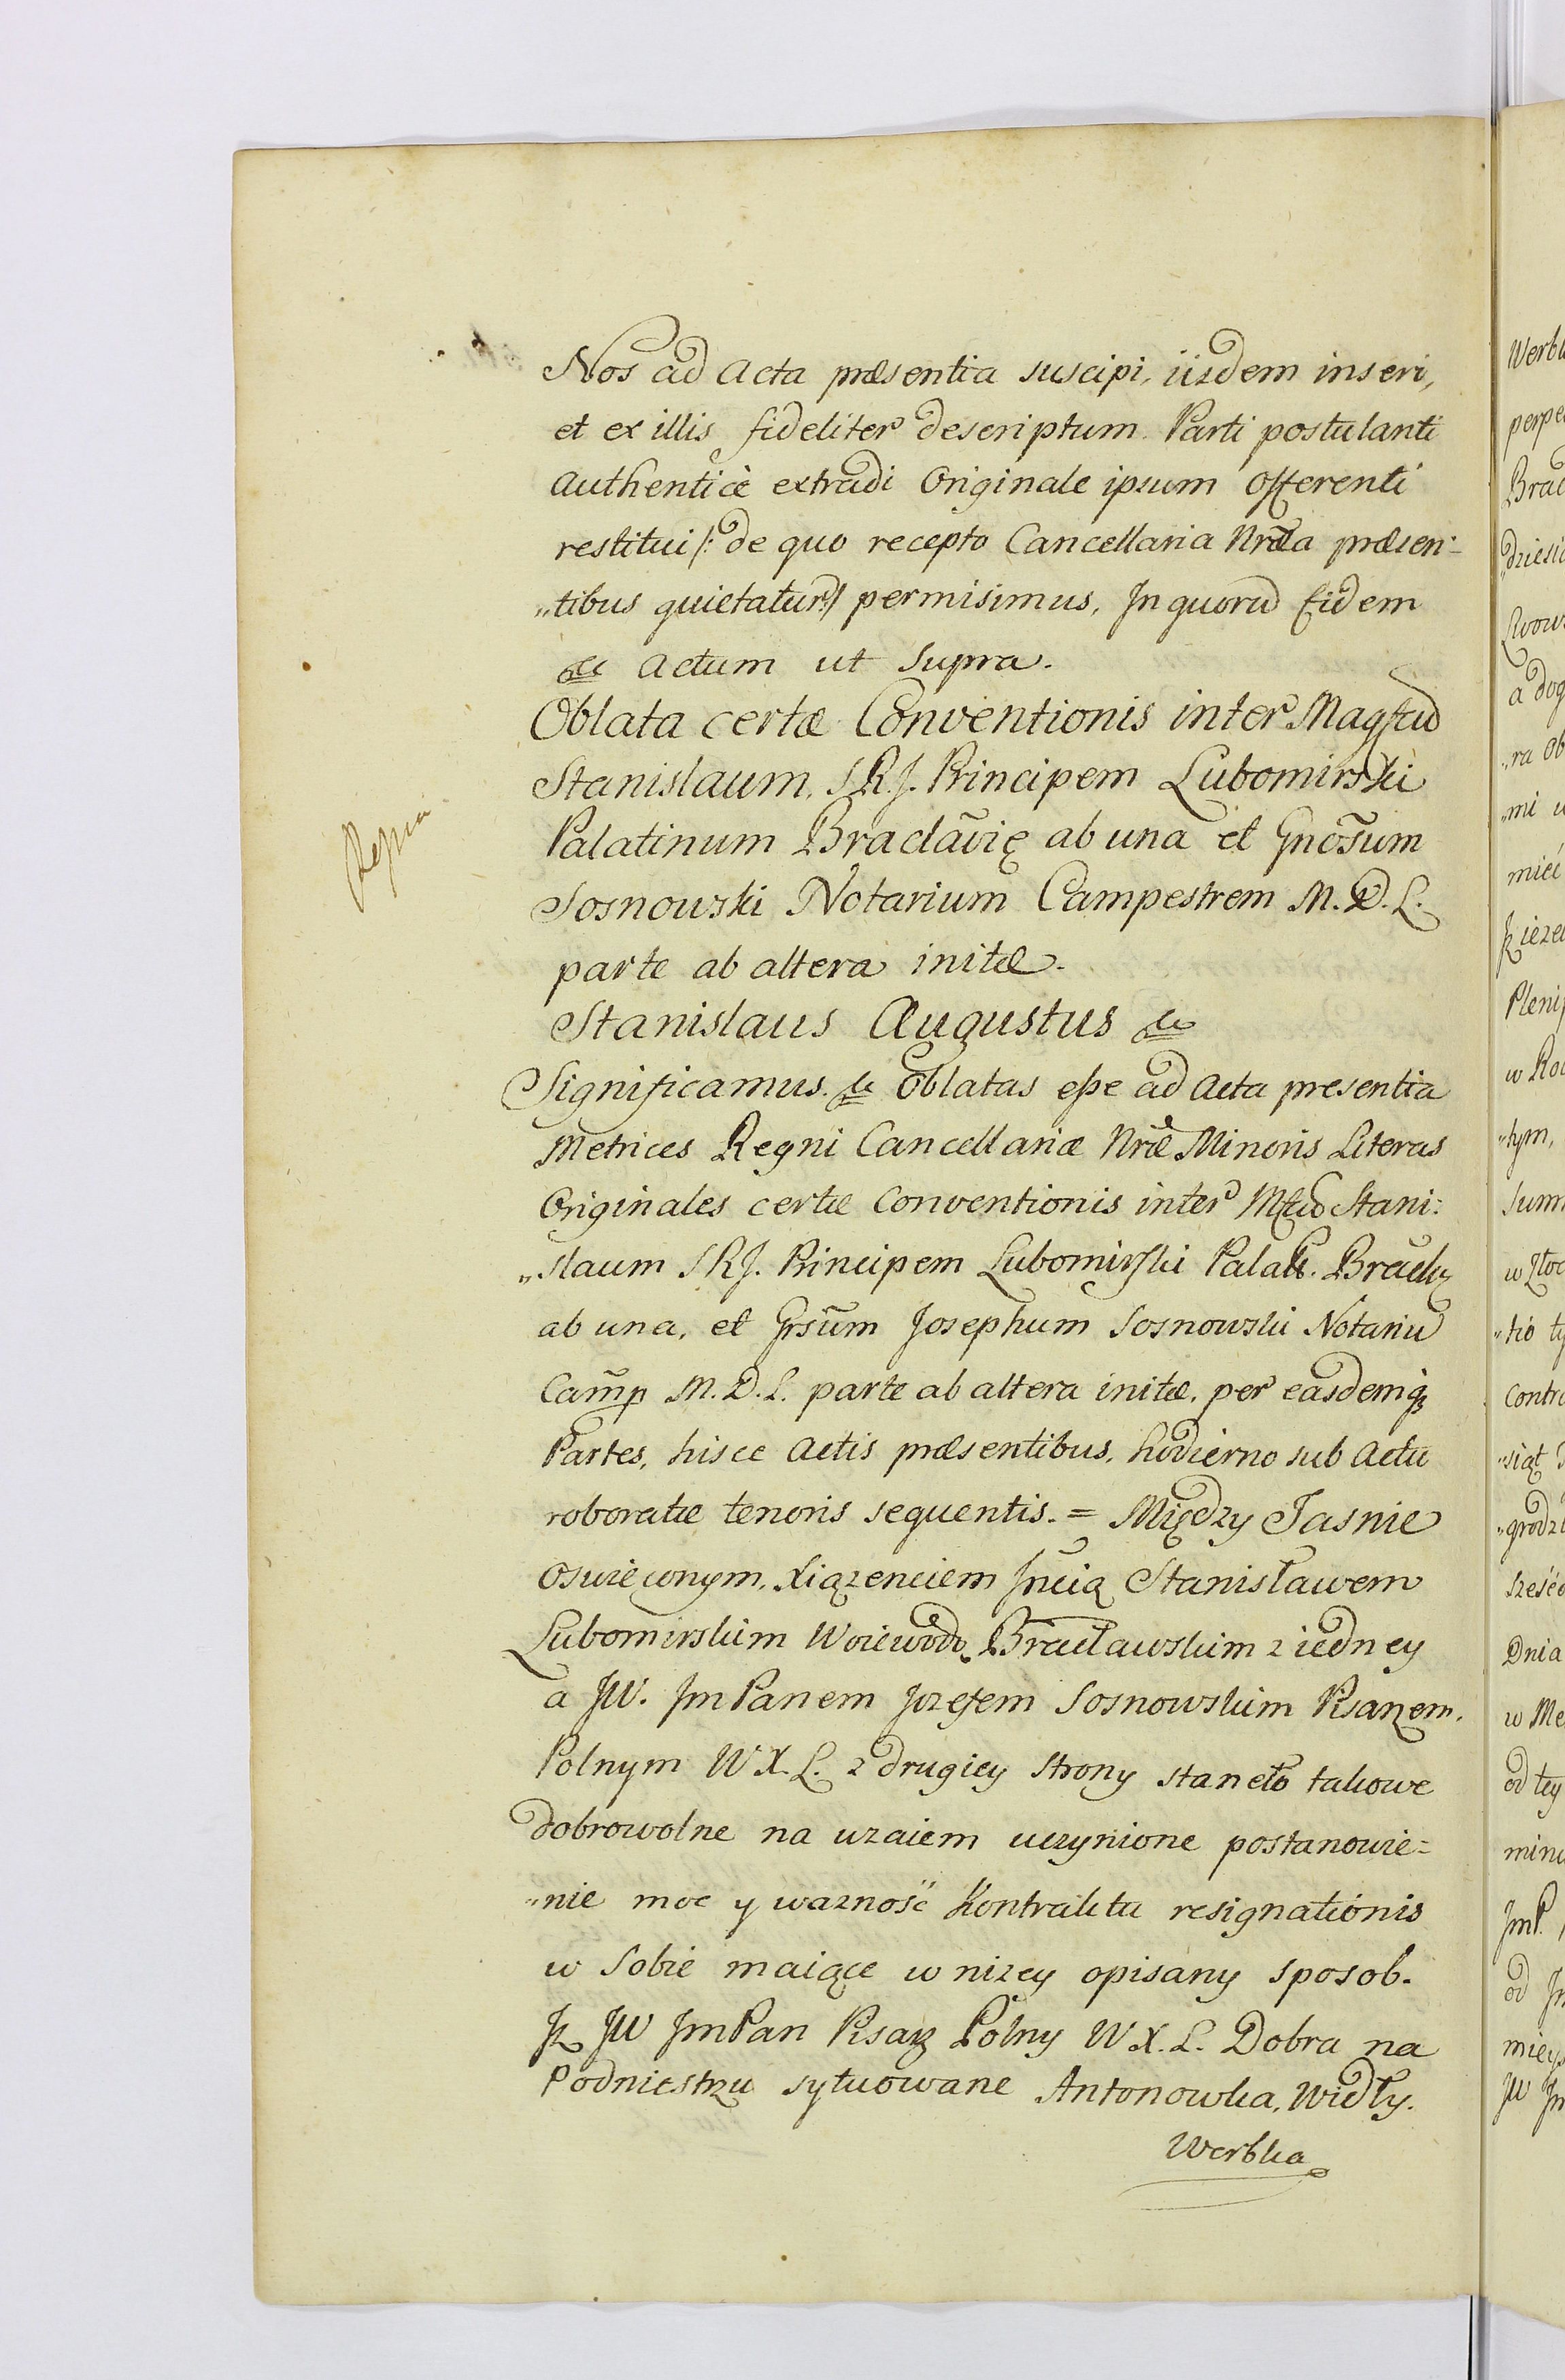 Nos ad Acta præsentia suscipi, iisdem inseri,
et ex illis fideliter descriptum. Parti postulanti
Authenticè extradi Originale ipsum Offerenti
restitui /: de quo recepto Cancellaria Nrã præsen-
„tibus quietatur :/ permisimus, In quorũ Fidem
&c Actum ut Supra.
Oblata certæ Conventionis inter Magfcũ
Stanislaum, S.R.J. Principem Lubomirski
Palatinum Braclãvię ab una et Gnõsum
Sosnowski Notarium Campestrem M.D.L.
parte ab altera initæ.
Stanislaus Augustus &c
Significamus. &c Oblatas esse ad Acta presentia
Metrices Regni Cancellariæ Nræ Minoris Literas
Originales certæ Conventionis inter Mfcũ Stani:
„slaum SRJ. Principem Lubomirski Palat.
ab una, et Grsũm Josephum Sosnowski Notariũ
Camp̃ M.D.L. parte ab altera initæ, per easdemq3
Partes, hisce Actis præsentibus, hodierno sub Actu
roboratæ tenoris sequentis. = Między Jasnie
Oswieconym, Xiązenciem Jmcią Stanisławem
Lubomirskim Woiewodą Bracławskim z iedney
a JW. JmPanem Jozefem Sosnowskim Pisarzem.
Polnym W.X.L. z drugiey strony staneło takowe
dobrowolne na wzaiem uczynione postanowie=
„nie moc y wazność Kontraktu resignationis
w Sobie maiące w nizey opisany sposob.
Jz JW JmPan Pisarz Polny W.X.L. Dobra na
Podniestrzu sytuowane Antonowka, Widły.
Werbka
Werbk
perpe
Brac
„dziesi
a dog
„ra ob
„mi
mieć
Jz ieze
Plenip
w Ro
„tym,
Sum
w Złoc
„tio
Contra
„siąt
„grodz
sześć
Dnia
w Me
od tey
minu
JmP.
od
miey
JW Jm